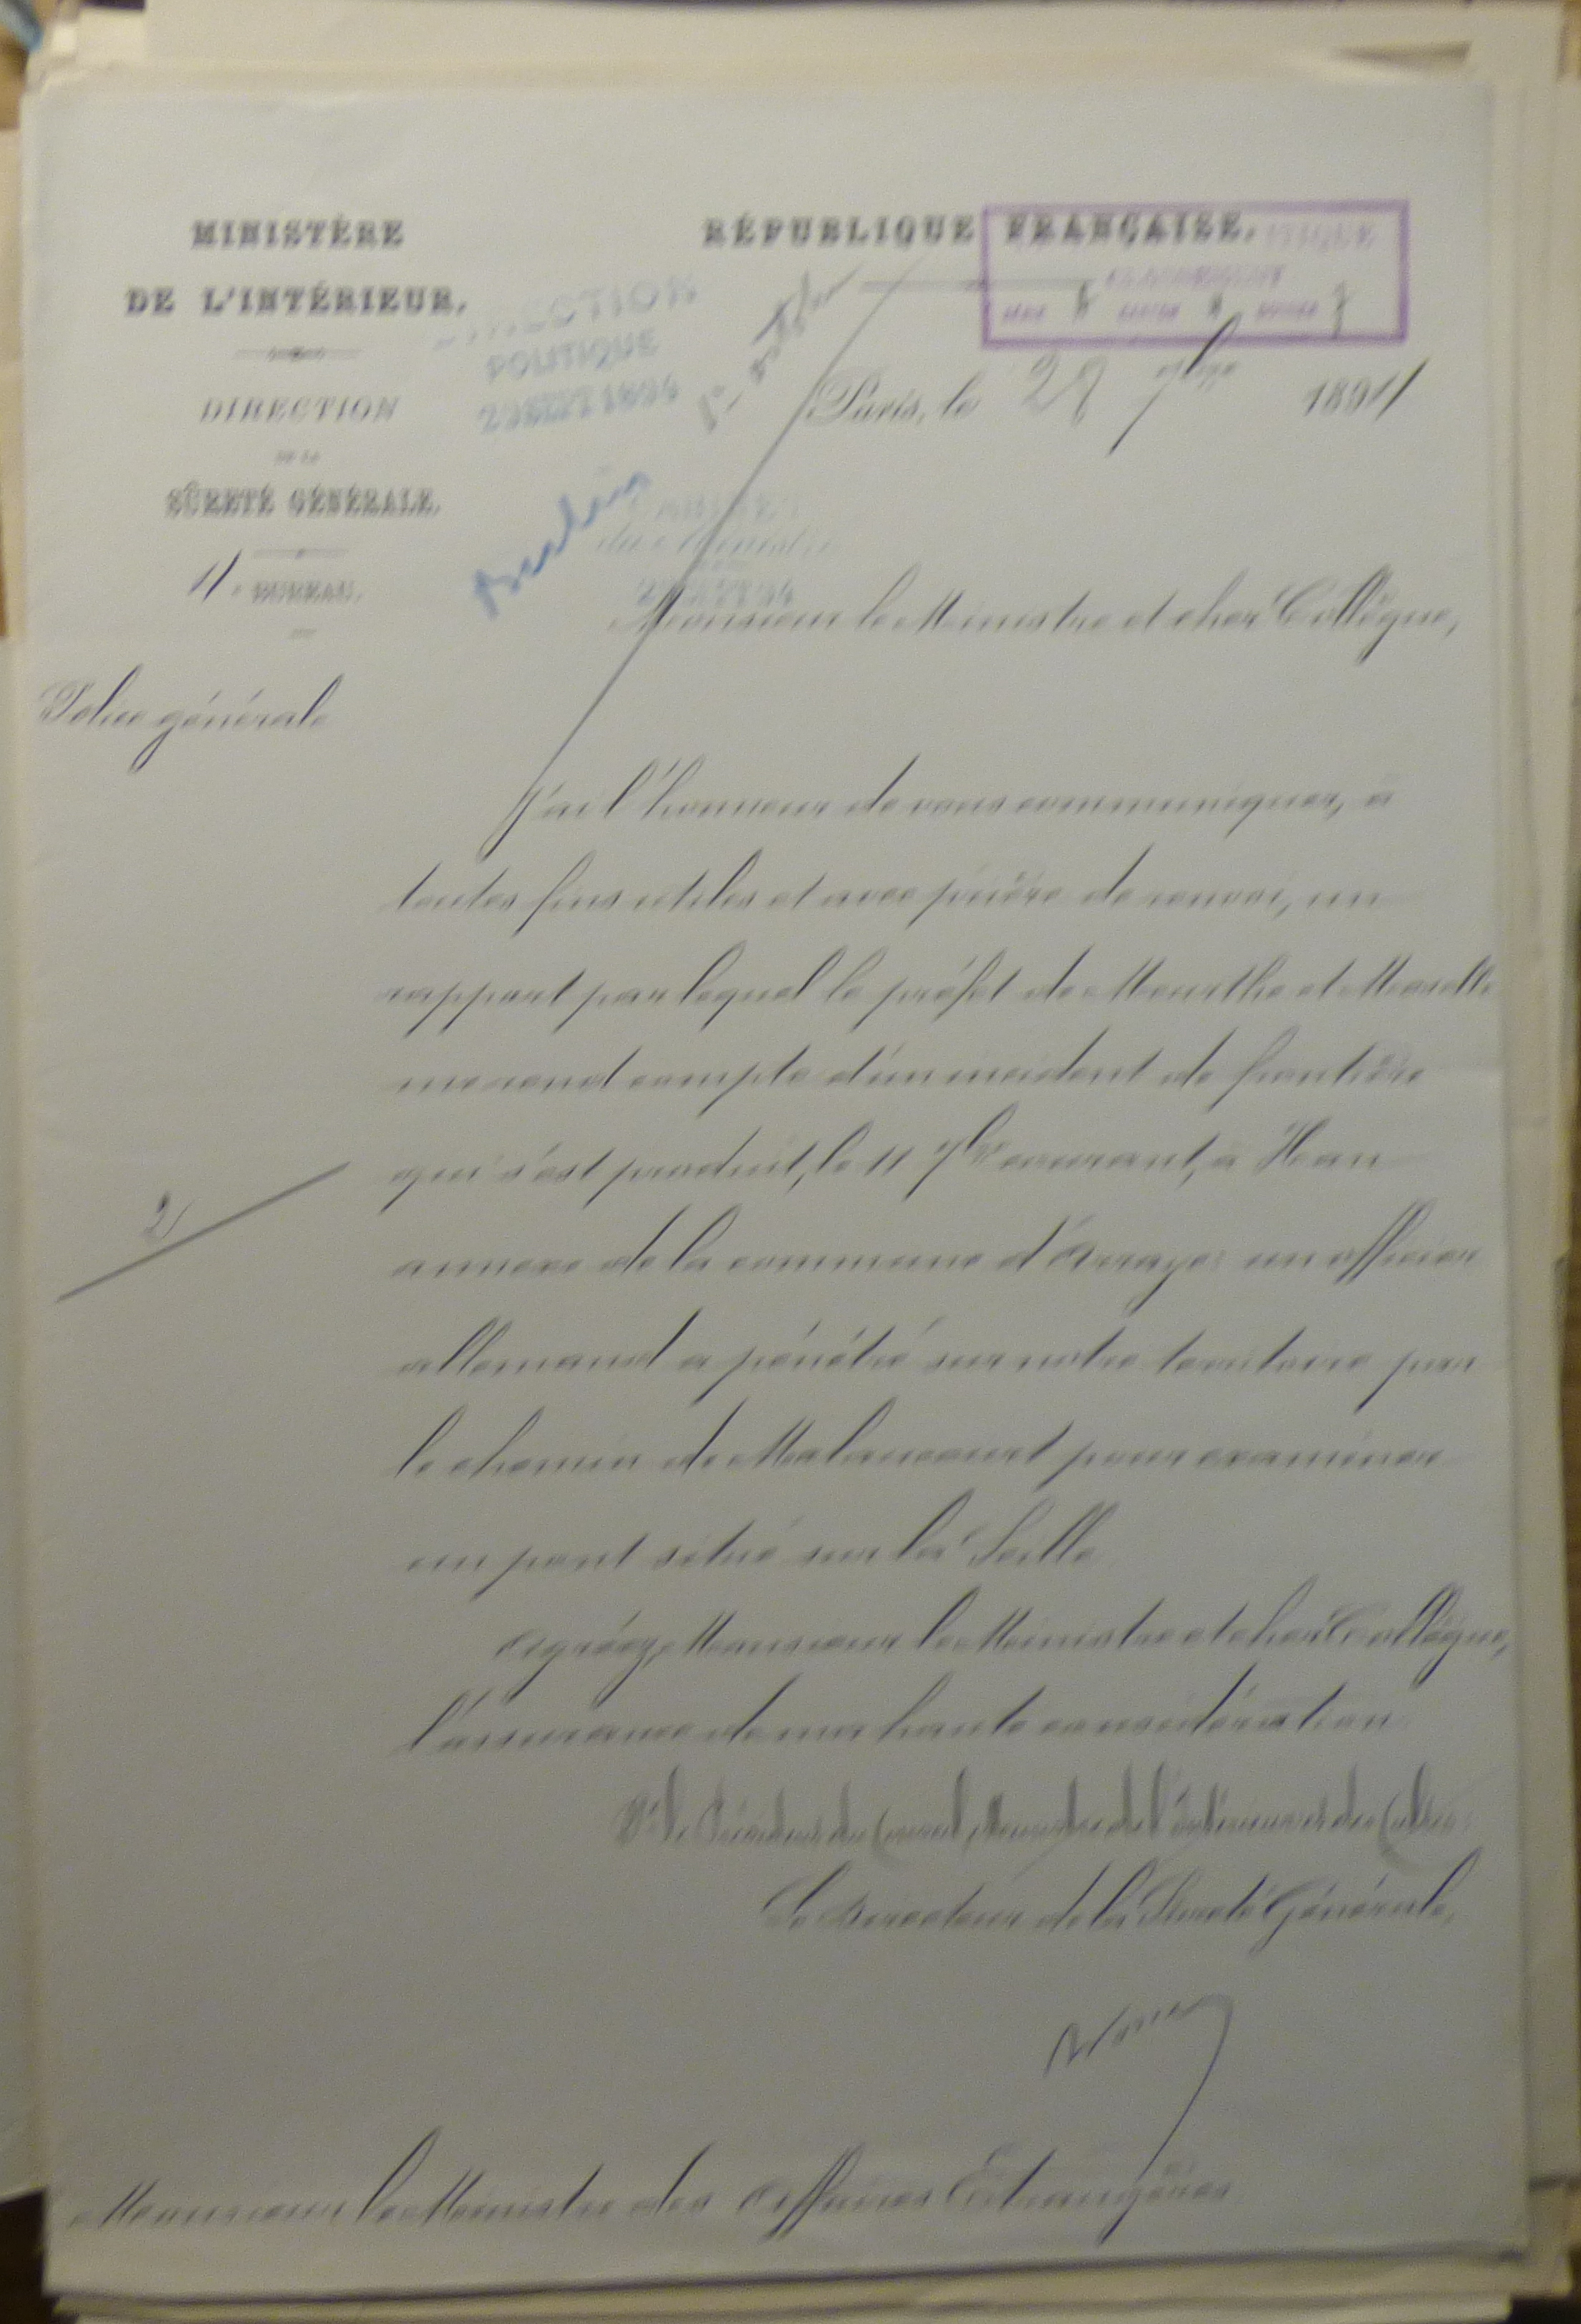 MINISTÈRE
DE L'INTÉRIEUR.
DIRECTION
DE LA
SÛRETÉ GÉNÉRALE.
4e BUREAU.
Police générale
RÉPUBLIQUE FRANÇAISE.
DIRECTION
POLITIQUE
29 SEPT 1894
Paris, le 28 7bre 1894
Berlin
CABINET
du Ministre
29 SEPT 94
Monsieur le Ministre et cher Collègue,
J'ai l'honneur de vous communiquer, à
toutes fins utiles et avec prière de renvoi, un
rapport par lequel le préfet de Meurthe et Moselle
me rend compte d'un incident de frontière
qui s'est produit, le 11 7bre courant, à Han
annexe de la commune d'Arraye: un officier
allemand a pénétré sur notre territoire par
le chemin de Malaucourt pour examiner
un pont situé sur la Seille
2
Agréez, Monsieur le Ministre et cher Collègue,
l'assurance de ma haute considération
Pr le Président du Conseil, Ministre de l'Intérieur et des Cultes:
Le Directeur de la Sûreté Générale,
Monsieur le Ministre des Affaires Etrangères